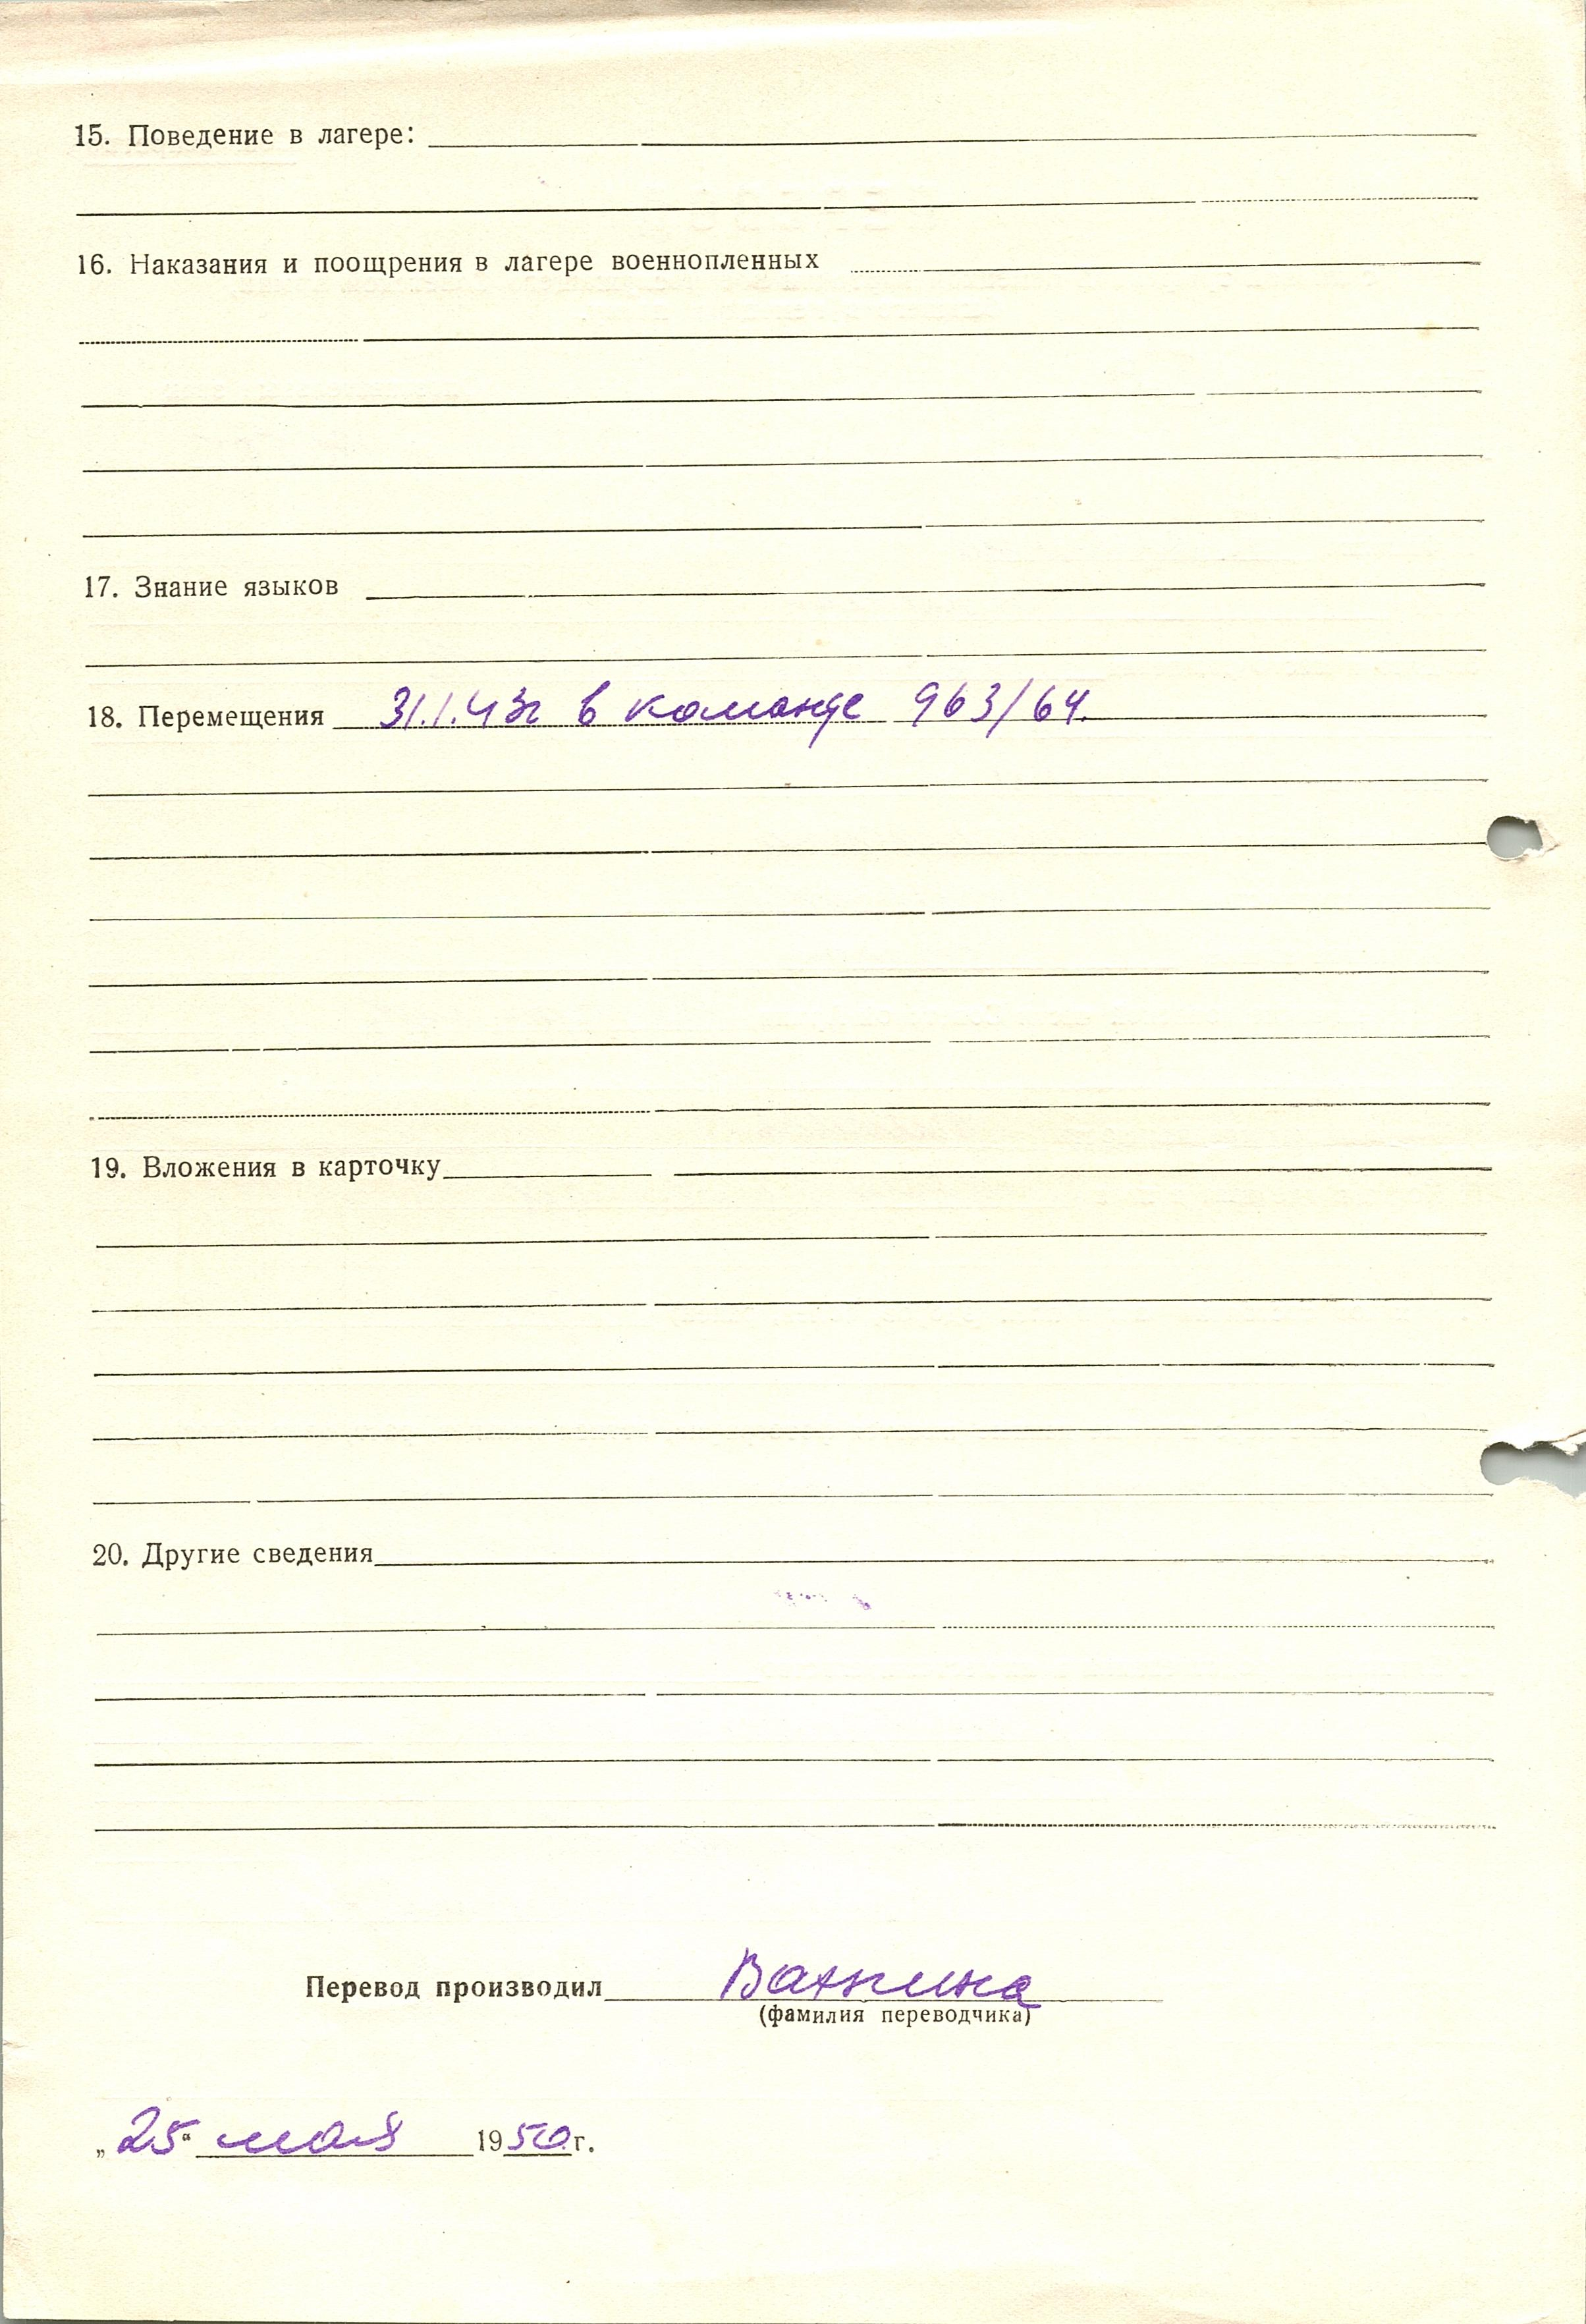 15. Поведение в лагере:
16. Наказания и поощрения в лагере военнопленных
17. Знание языков
18. Перемещения 31.1.43г в команде 963/64.
19. Вложения в карточку
20. Другие сведения
Перевод производил
(фамилия переводчика)
„25“ мая 1950г.